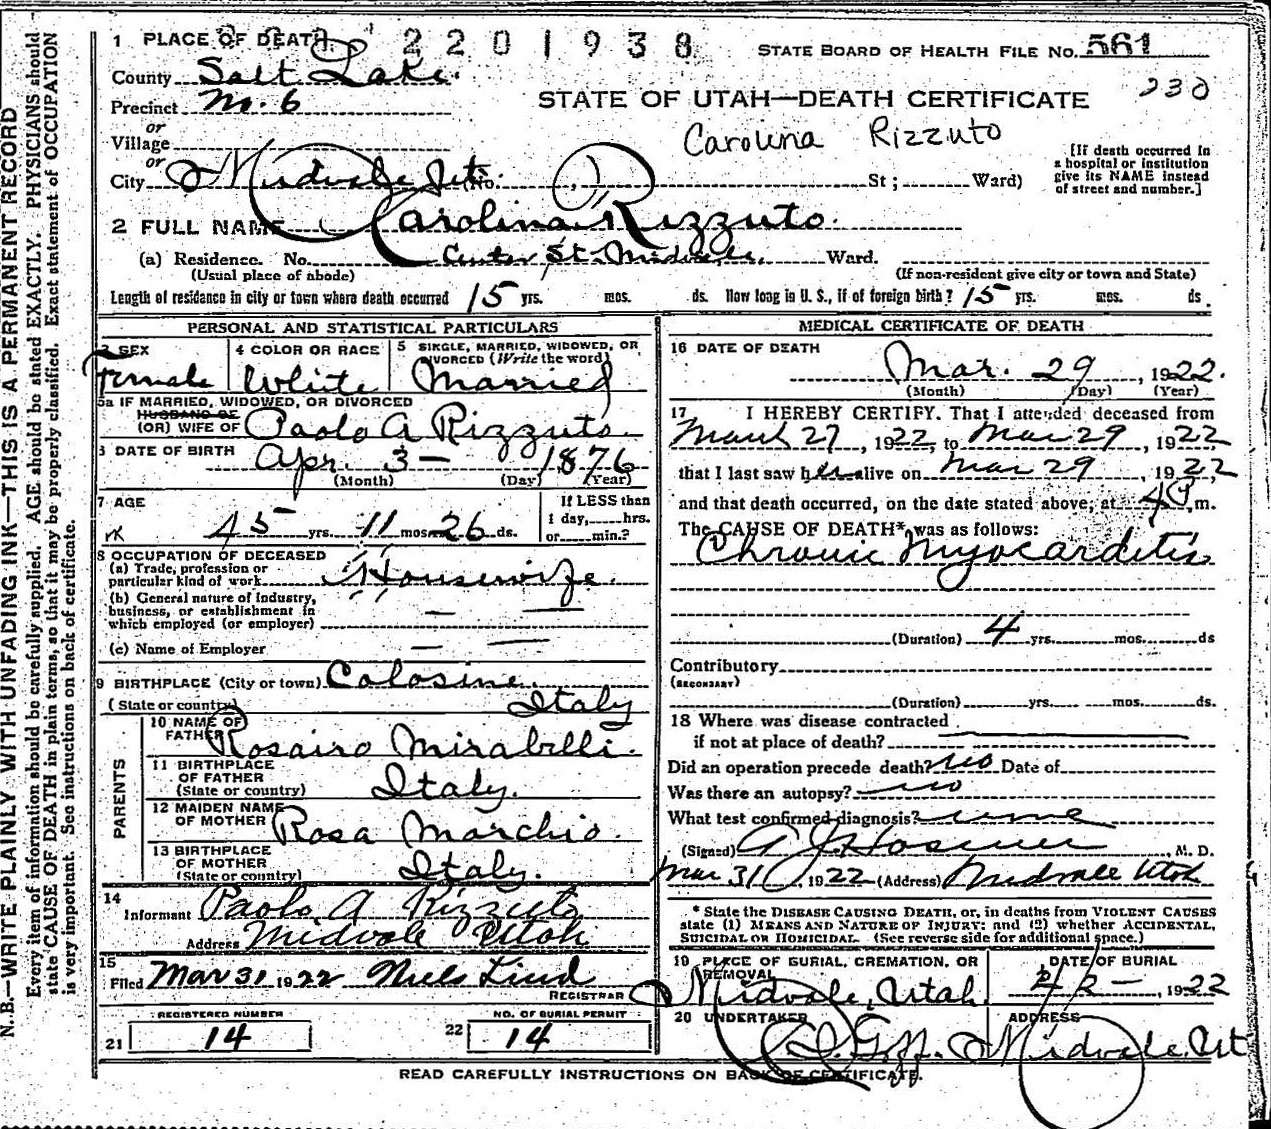 1 PLACE OF DEATH 2201938 STATE BOARD OF HEALTH FILE No. 561
County Salt Lake. 230
Precinct No. 6 STATE OF UTAH—DEATH CERTIFICATE
or
Village Carolina Rizzuto
or
City Midvale (No. St; Ward)
[If death occurred in
a hospital or institution
give its NAME instead
of street and number.]
2 FULL NAME Carolina Rizzuto.
(a) Residence. No. Center St. Midvale. Ward.
(Usual place of abode) (If non-resident give city or town and State)
Length of residence in city or town where death occurred 15 yrs. mos. ds. How long in U. S., if of foreign birth? 15 yrs. mos. ds.
PERSONAL AND STATISTICAL PARTICULARS
3 SEX 4 COLOR OR RACE 5 SINGLE, MARRIED, WIDOWED, OR
DIVORCED (Write the word)
Female White Married
5a IF MARRIED, WIDOWED, OR DIVORCED
HUSBAND OF
(OR) WIFE OF Paolo A Rizzuto.
6 DATE OF BIRTH Apr. 3 — 1876
(Month) (Day) (Year)
7 AGE If LESS than
45 yrs. 11 mos. 26 ds. 1 day, hrs.
or min.?
8 OCCUPATION OF DECEASED
(a) Trade, profession or
particular kind of work Housewife.
(b) General nature of industry,
business, or establishment in
which employed (or employer)
(c) Name of Employer
9 BIRTHPLACE (City or town) Colosine.
(State or country) Italy
PARENTS
10 NAME OF
FATHER Rosairo Mirabelli.
11 BIRTHPLACE
OF FATHER
(State or country) Italy.
12 MAIDEN NAME
OF MOTHER Rosa Marchio.
13 BIRTHPLACE
OF MOTHER
(State or country) Italy.
14
Informant Paolo A Rizzuto
Address Midvale Utah
15
Filed Mar 31 1922 Niels Lind
REGISTRAR
REGISTERED NUMBER NO. OF BURIAL PERMIT
21 14 22 14
MEDICAL CERTIFICATE OF DEATH
16 DATE OF DEATH
Mar. 29, 1922.
(Month) (Day) (Year)
17 I HEREBY CERTIFY. That I attended deceased from
March 27, 1922, to Mar 29, 1922
that I last saw her alive on Mar 29, 1922,
and that death occurred, on the date stated above, at m.
The CAUSE OF DEATH*, was as follows:
Chronic Myocarditis
(Duration) 4 yrs. mos. ds
Contributory
(SECONDARY)
(Duration) yrs. mos. ds.
18 Where was disease contracted
if not at place of death?
Did an operation precede death? no Date of
Was there an autopsy? no
What test confirmed diagnosis?
(Signed) A J Hosmer, M. D.
Mar 31, 1922 (Address) Midvale Utah
* State the DISEASE CAUSING DEATH, or, in deaths from VIOLENT CAUSES
state (1) MEANS AND NATURE OF INJURY; and (2) whether ACCIDENTAL,
SUICIDAL OR HOMICIDAL. (See reverse side for additional space.)
19 PLACE OF BURIAL, CREMATION, OR DATE OF BURIAL
REMOVAL
Midvale, Utah. 4/2 —, 1922
20 UNDERTAKER ADDRESS
Goff. Midvale, Ut
READ CAREFULLY INSTRUCTIONS ON BACK OF CERTIFICATE.
N. B.—WRITE PLAINLY WITH UNFADING INK—THIS IS A PERMANENT RECORD
Every item of information should be carefully supplied. AGE should be stated EXACTLY. PHYSICIANS should
state CAUSE OF DEATH in plain terms, so that it may be properly classified. Exact statement of OCCUPATION
is very important. See instructions on back of certificate.